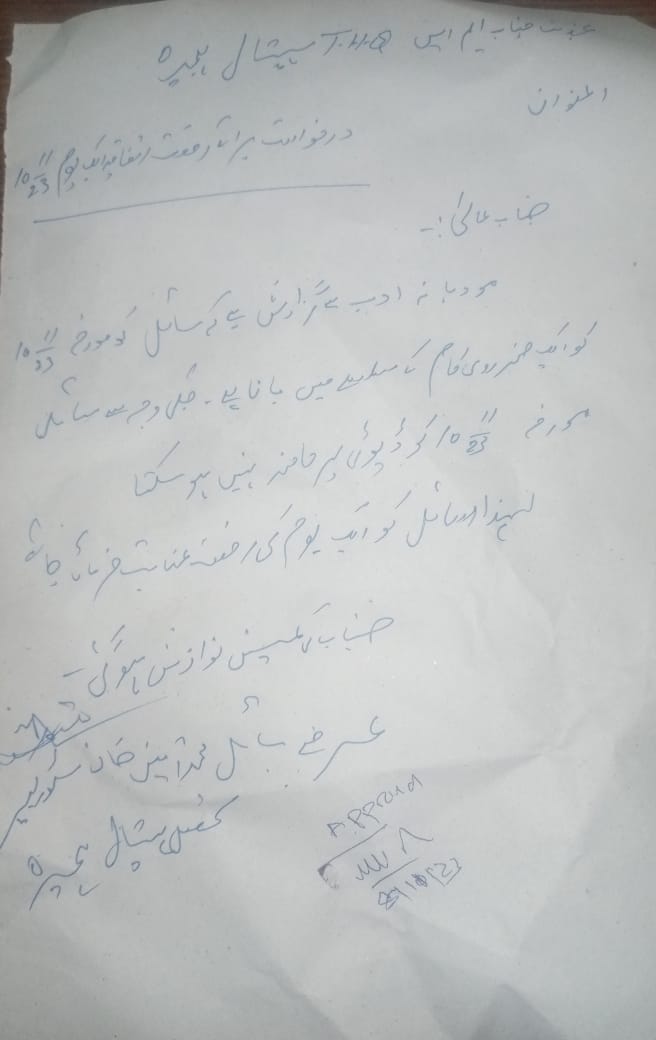 بخدمت جناب ایم ایس T.H.Q ہسپتال ہجیرہ
العنوان
درخواست برائے رخصت اتفاقیہ ایک یوم 10/11/23
جناب عالی :-
مودبانہ ادب سے گزارش ہے کہ سائل کو مورخہ 10/11/23
کو ایک ضروری کام کے سلسلے میں جانا ہے۔ جسکی وجہ سے سائل
مورخہ 10/11/23 کو ڈیوٹی پر حاضر نہیں ہو سکتا
لہذا سائل کو ایک یوم کی رخصت عنایت فرمائی جائے
جناب کی عین نوازش ہوگی۔
عرضے سائل محمد خان
تحصیل ہسپتال ہجیرہ
Approved